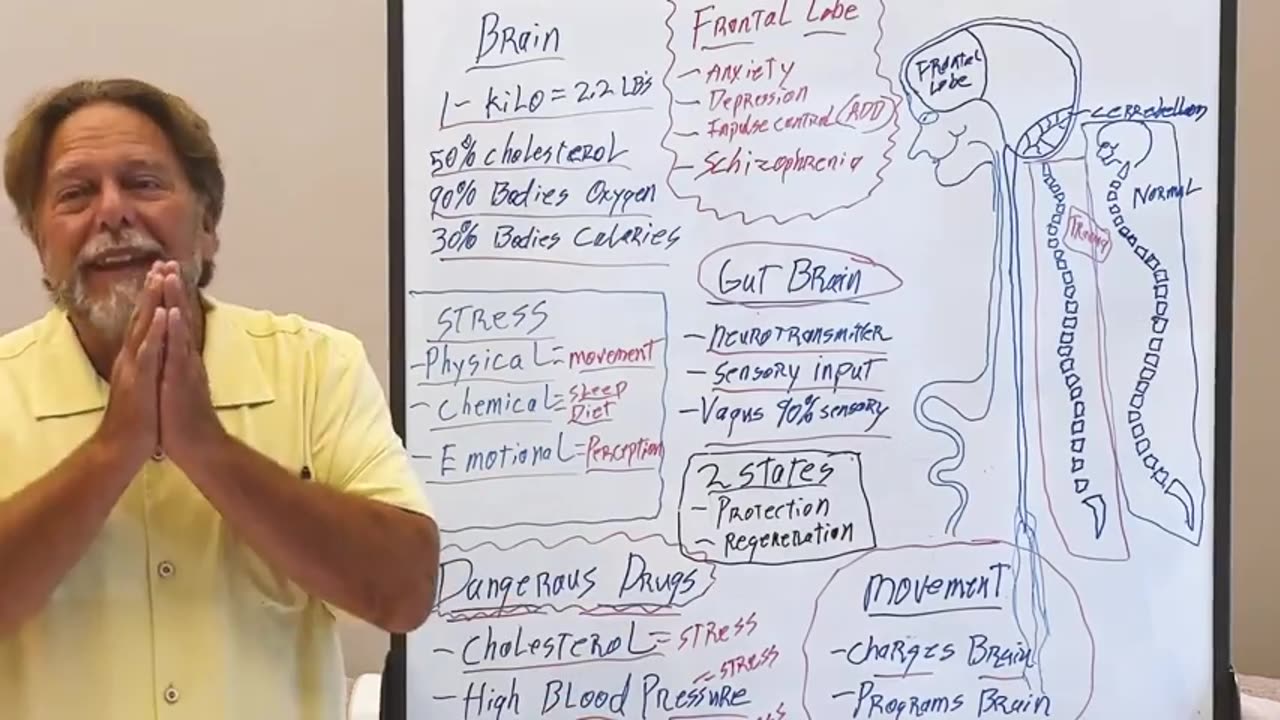 Brain
1 - KiLO = 2.2 LB's
50% cholesterol
90% Bodies Oxygen
30% Bodies Caleries
Frontal Lobe
- Anxiety
- Depression
- Impulse control (ADD)
- Schizophrenia
Frontal
Lobe
cerrebellom
NORMAL
STRESS
- Physical = movement
- Chemical = Sleep
Diet
- Emotional = Perception
Gut Brain
- Neurotransmitter
- Sensory input
- Vagus 90% sensory
2 States
- Protection
- Regeneration
Dangerous Drugs
- Cholesterol = STRESS
- High Blood Pressure = STRESS
Movement
- Charges Brain
- Programs Brain